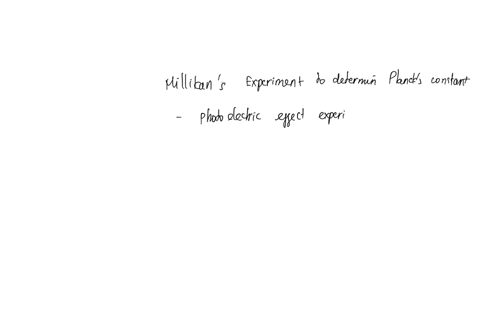 Millikan's Experiment to determin Planck's constant
- photo electric effect experi